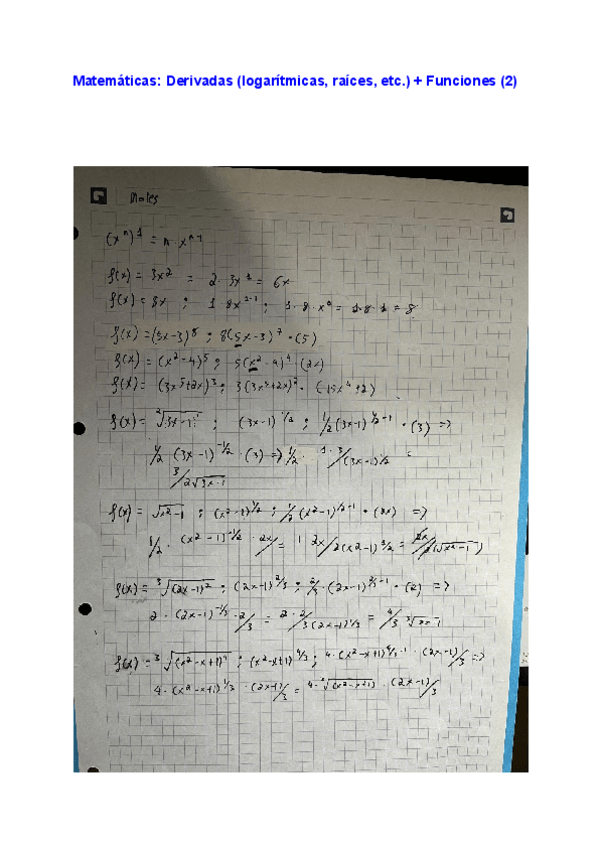 Matemáticas: Derivadas (logarítmicas, raíces, etc.) + Funciones (2)
(xⁿ)¹ = n · xⁿ⁻¹
f(x) = 3x² = 2 · 3x¹ = 6x
f(x) = 8x ; 1 · 8x¹⁻¹ ; 1 · 8 · x⁰ = 1 · 8 · 1 = 8
f(x) = (5x-3)⁸ ; 8(5x-3)⁷ · (5)
f(x) = (x²-4)⁵ ; 5(x²-4)⁴ · (2x)
f(x) = (3x⁵+2x)³ ; 3(3x⁵+2x)² · (15x⁴+2)
f(x) = ²√3x-1 ; (3x-1)^1/2 ; 1/2 (3x-1)^1/2-1 · (3) =>
1/2 (3x-1)^-1/2 · (3) => 1/2 · 3/(3x-1)^1/2 =
3/2√3x-1
f(x) = √x²-1 ; (x²-1)^1/2 ; 1/2 (x²-1)^1/2-1 · (2x) =>
1/2 · (x²-1)^-1/2 · 2x
f(x) = ³√(2x-1)² ; (2x-1)^2/3 ; 2/3 · (2x-1)^2/3-1 · (2) =>
2 · (2x-1)^-1/3 · 2/3 = 2 · 2/3(2x-1)^1/3 =
f(x) = ³√(x²-x+1)⁴ ; (x²-x+1)^4/3 ; 4 · (x²-x+1)^4/3-1 · (2x-1)/3 =>
4 · (x²-x+1)^1/3 · (2x-1)/3 = 4 · ³√(x²-x+1) · (2x-1)/3